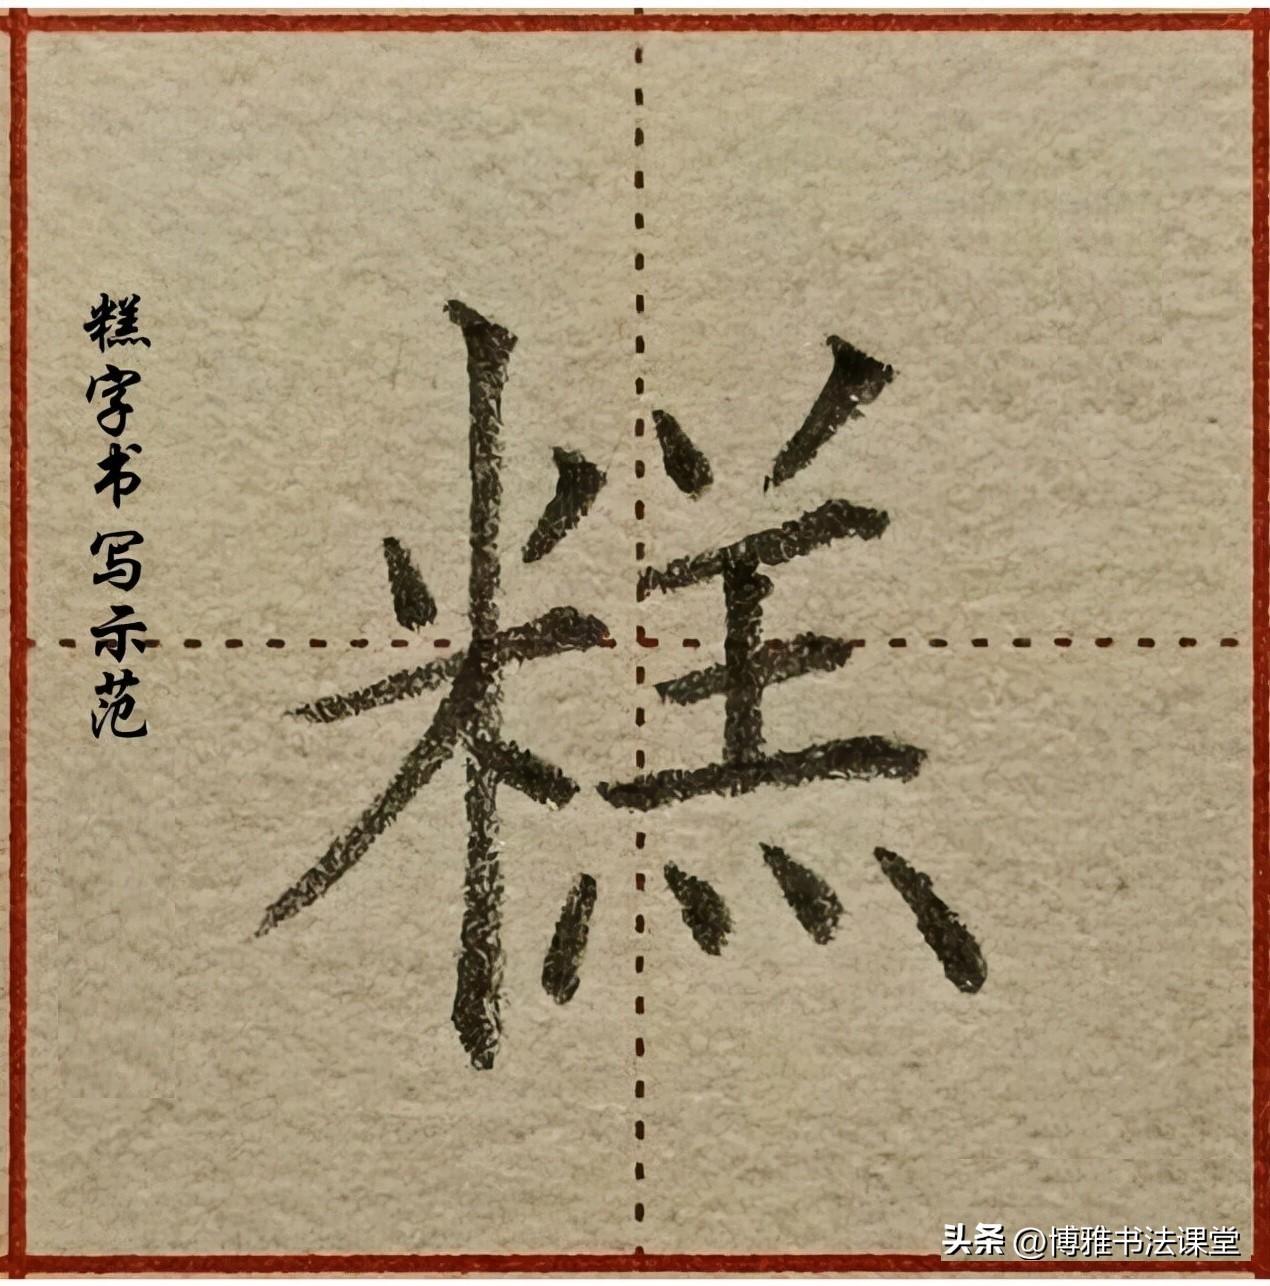 糕字书写示范
糕
头条 @博雅书法课堂